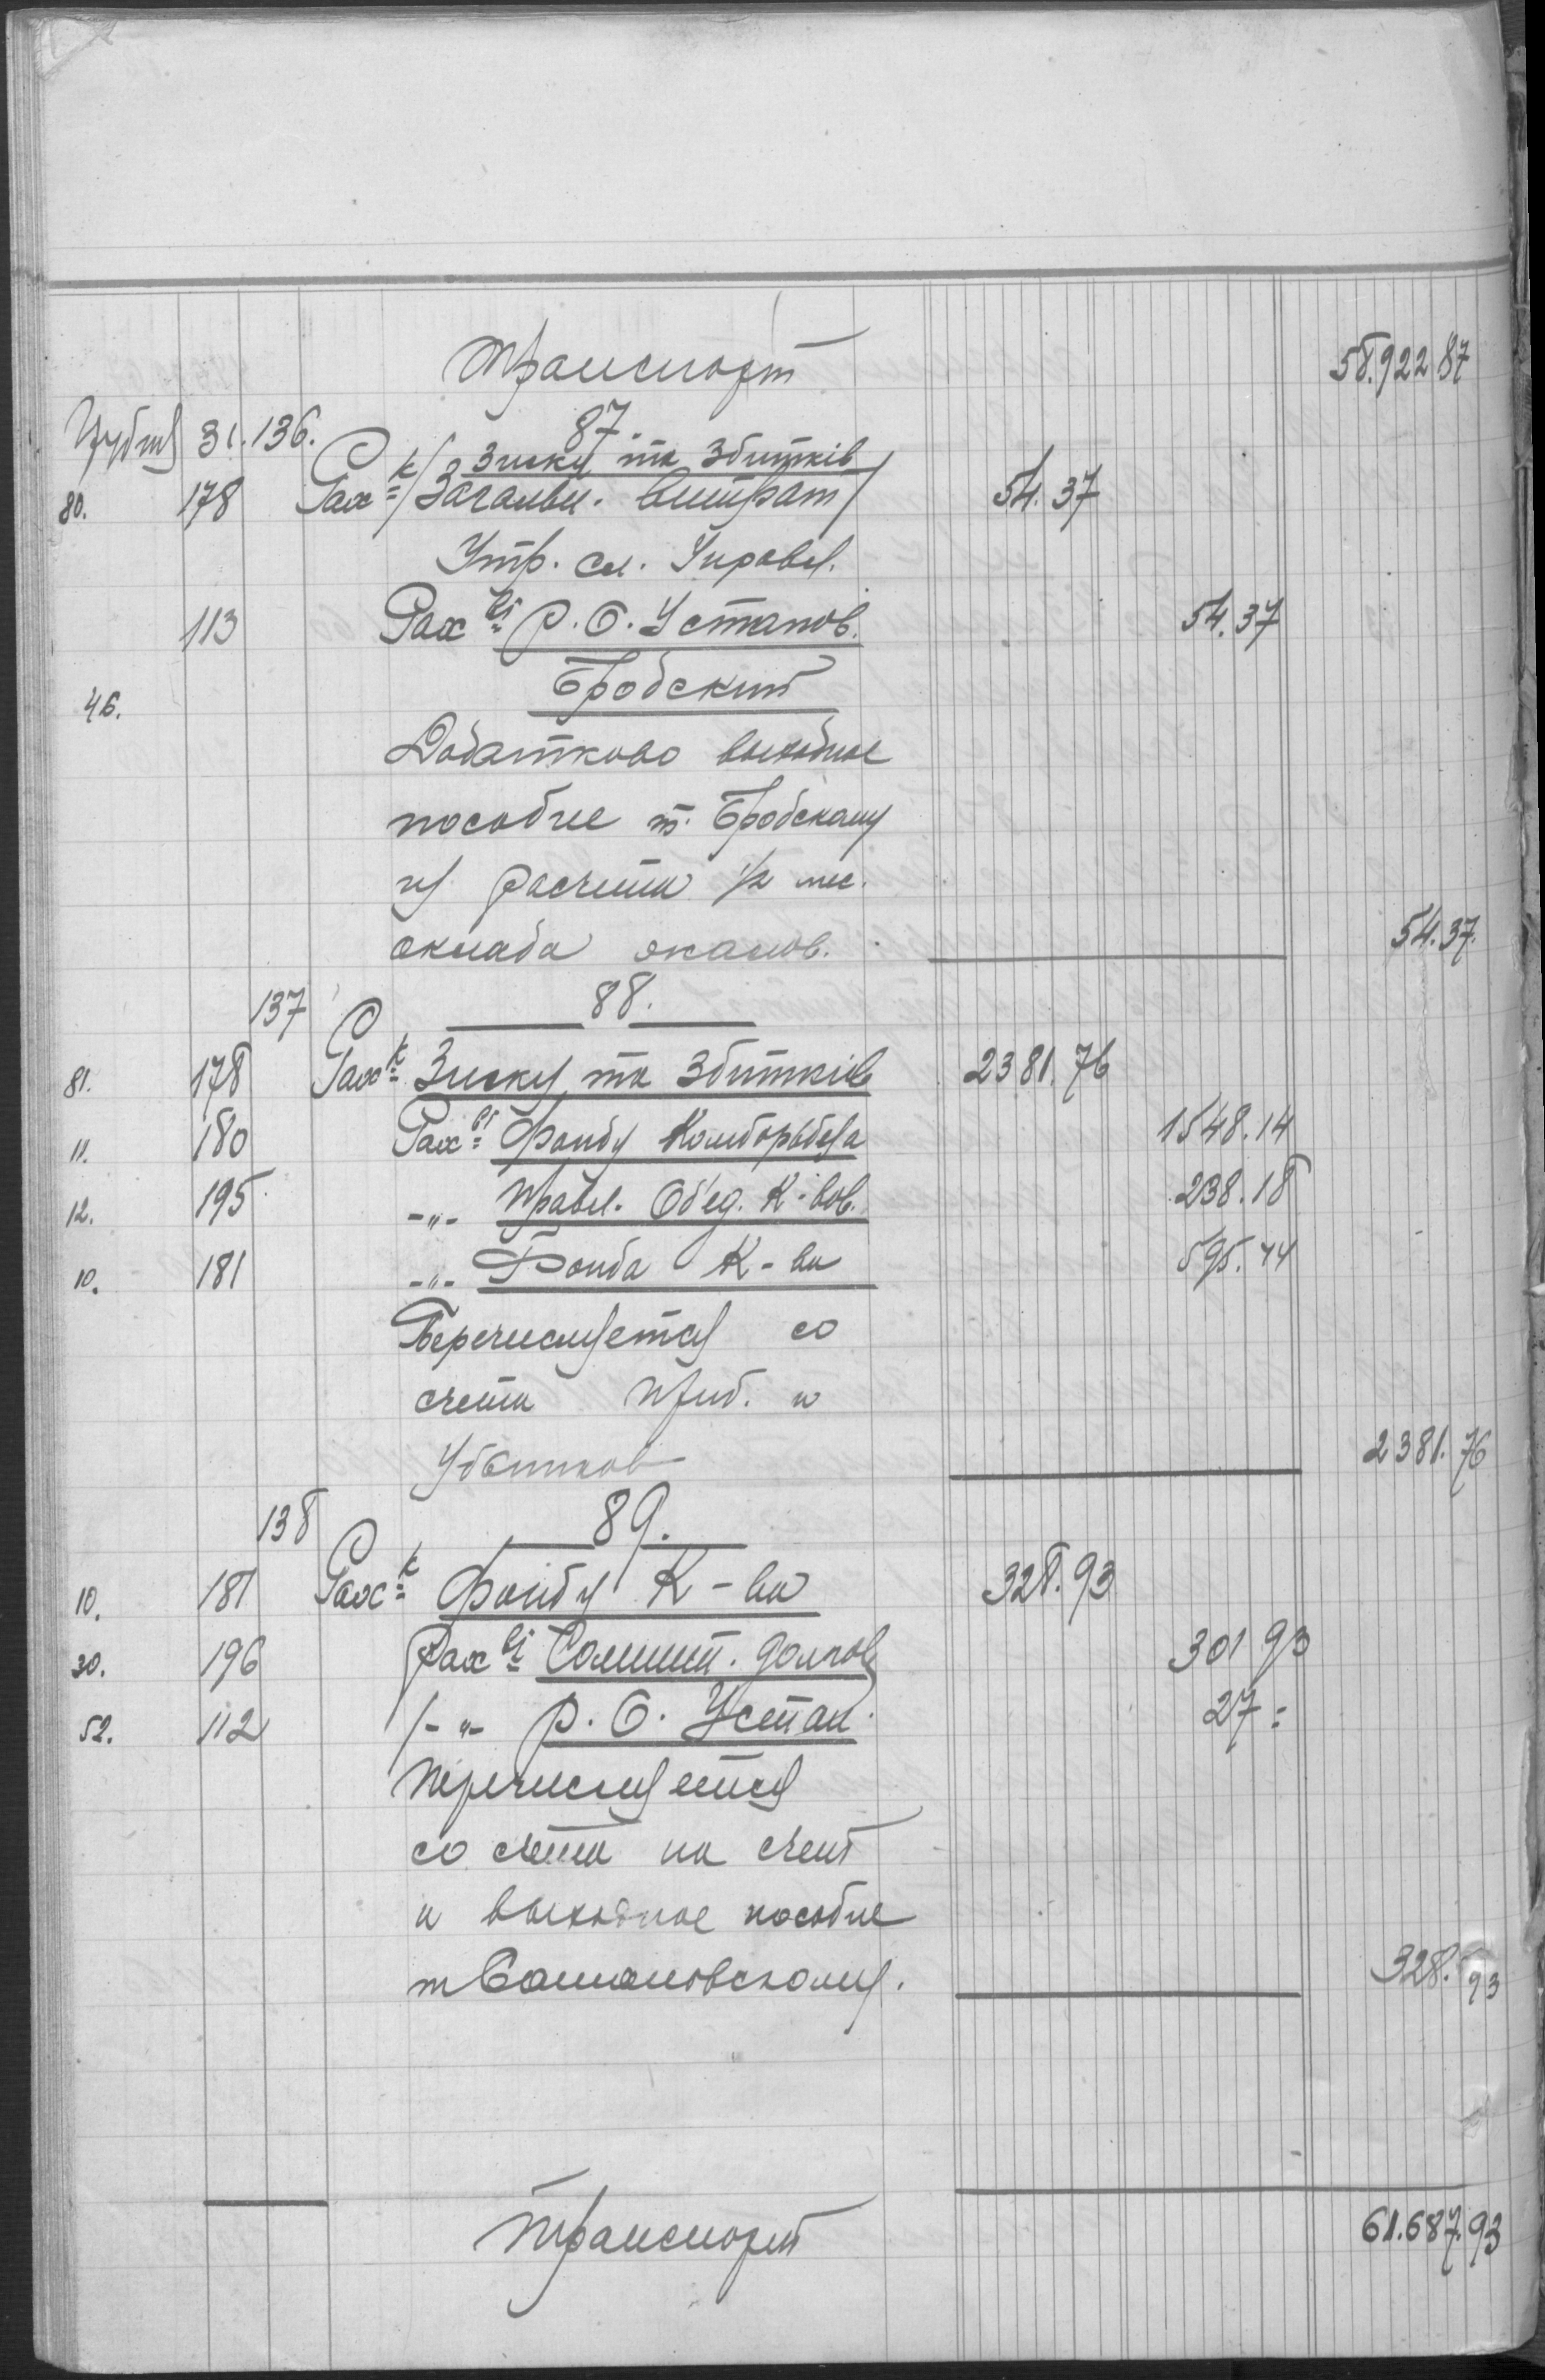 Транспорт 58.922 87
31. 136. 87.
Зиску та Збитків
80. 178 Рах к/ Загальн. витрат 54.37
Утр. сч. Управл.
113 Рах ві Р. О. Установ. 54.37
Бродский
46.
Додатково выходное
пособие т. Бродскому
из расчета 1/2 мес.
оклада 54.37.
137 88.
81. 178 Рах к Зиску та Збитків 2381.76
11. 180 Рах ві Фонду 1548.14
12. 195 -"- Правл. Об'ед. К-вов. 238.18
10. 181 -"- Фонда К-ва 595.44
Перечисляется со
счета приб. и
Убытков 2381.76
138 89.
10. 181 Рах к Фонду К-ва 328.93
30. 196 Рах ві Сомнит. долгов 301 93
52. 112 -"- Р. О. Устан. 27 =
Перечисляется
со счета на счет
и выходное пособие
328.93
Транспорт 61.687.93